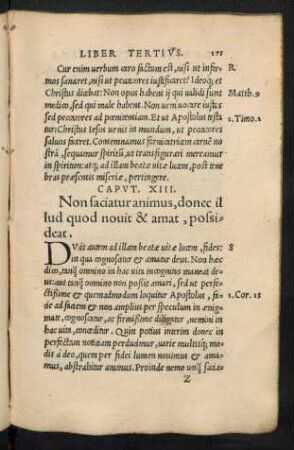 LIBER TERTIVS.
Cur enim uerbum caro factum est, nisi ut infir- R
mos sanaret, nisi ut peccatores iustificaret? Ideoq; et
Christus dicebat: Non opus habent ij qui ualidi sunt Matth. 9
medico, sed qui male habent. Non ueni uocare iustos
sed peccatores ad pœnitentiam. Et ut Apostolus testa 1. Timo. 1
tur: Christus Iesus uenit in mundum, ut peccatores
saluos faceret. Contemnamus
strā, sequamur spiritū, ut transfigurari mereamur
in spiritum: atq; ad illam beatæ uitæ lucem, post tene
bras præsentis miseriæ, pertingere.
CAPVT. XIII.
Non saciatur animus, donec il
lud quod nouit & amat, possi-
deat.
DVcit autem ad illam beatæ uitæ lucem, fides: S
in qua cognoscatur & amatur deus. Non hæc
dico, tanq̃ omnino in hac uita incognitus maneat de-
us: aut tanq̃ omnino non possit amari, sed ut perfe-
ctissime & quemadmodum loquitur Apostolus, fa- 1. Cor. 13
cie ad faciem & non amplius per speculum in ænig-
mate, cognoscatur, ac firmissime diligatur, nemini in
hac uita, conceditur. Quin potius interim donec in
perfectam notitiam perducimur, uarie multisq; mo-
dis à deo, quem per fidei lumen nouimus & ama-
mus, abstrahitur animus. Proinde nemo unq̃ sacia-
Z